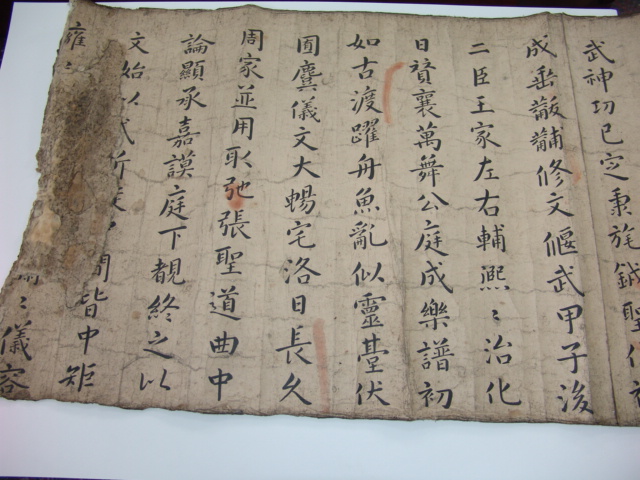 武神功已定秉旄鉞聖代
成垂黻黼修文偃武甲子後
二臣王家左右輔熙〻治化
日賛襄萬舞公庭成樂譜初
如古渡躍舟魚亂似靈臺伏
囿麌儀文大暢宅洛日長久
周家並用取弛張聖道曲中
論顯承嘉謨庭下覩終之以
文始以武所間皆中矩
雍〻〻儀容